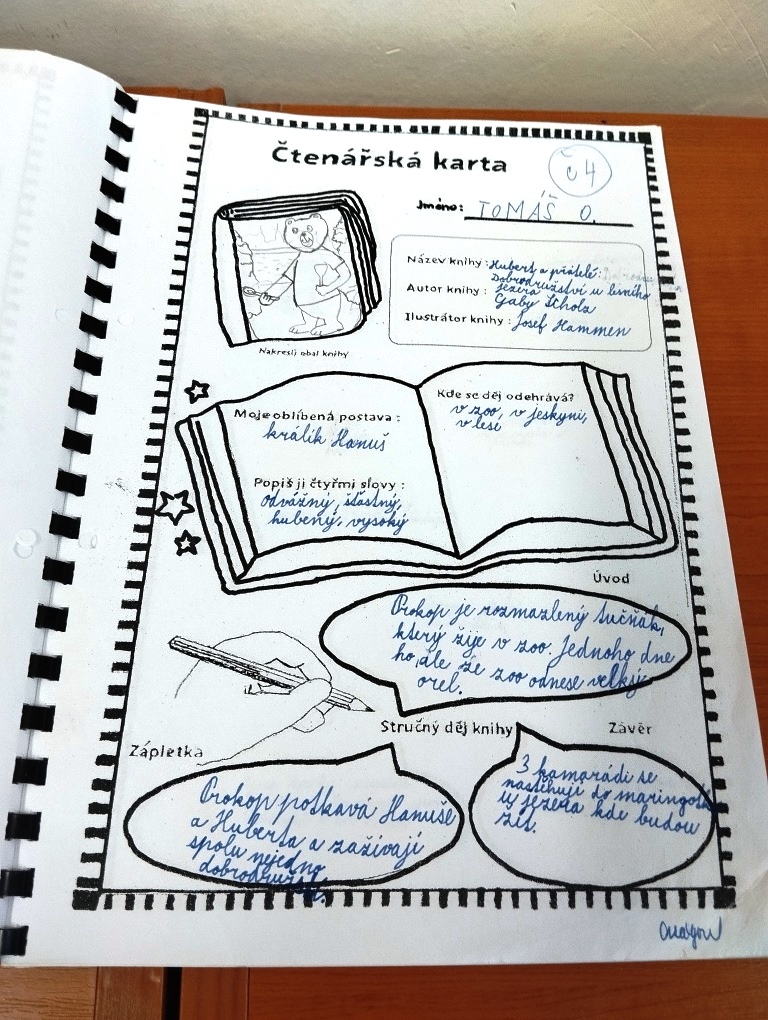 Čtenářská karta
č 4
Jméno: TOMÁŠ O.
Název knihy: Hubert a přátelé:
Dobrodružství u lesního
jezera
Autor knihy: Gaby Scholz
Ilustrátor knihy: Josef Hammen
Nakresli obal knihy
Moje oblíbená postava:
králík Hanuš
Popiš ji čtyřmi slovy:
odvážný, šťastný,
hubený, vysoký
Kde se děj odehrává?
v zoo, v jeskyni,
v lese
Úvod
Prokop je rozmazlený tučňák,
který žije v zoo. Jednoho dne
ho ale ze zoo odnese velký
orel.
Stručný děj knihy
Zápletka
Prokop potkavá Hanuše
a Huberta a zažívají
spolu nejedno
dobrodružství.
Závěr
3 kamarádi se
nastěhují do maringotk
u jezera kde budou
žít.